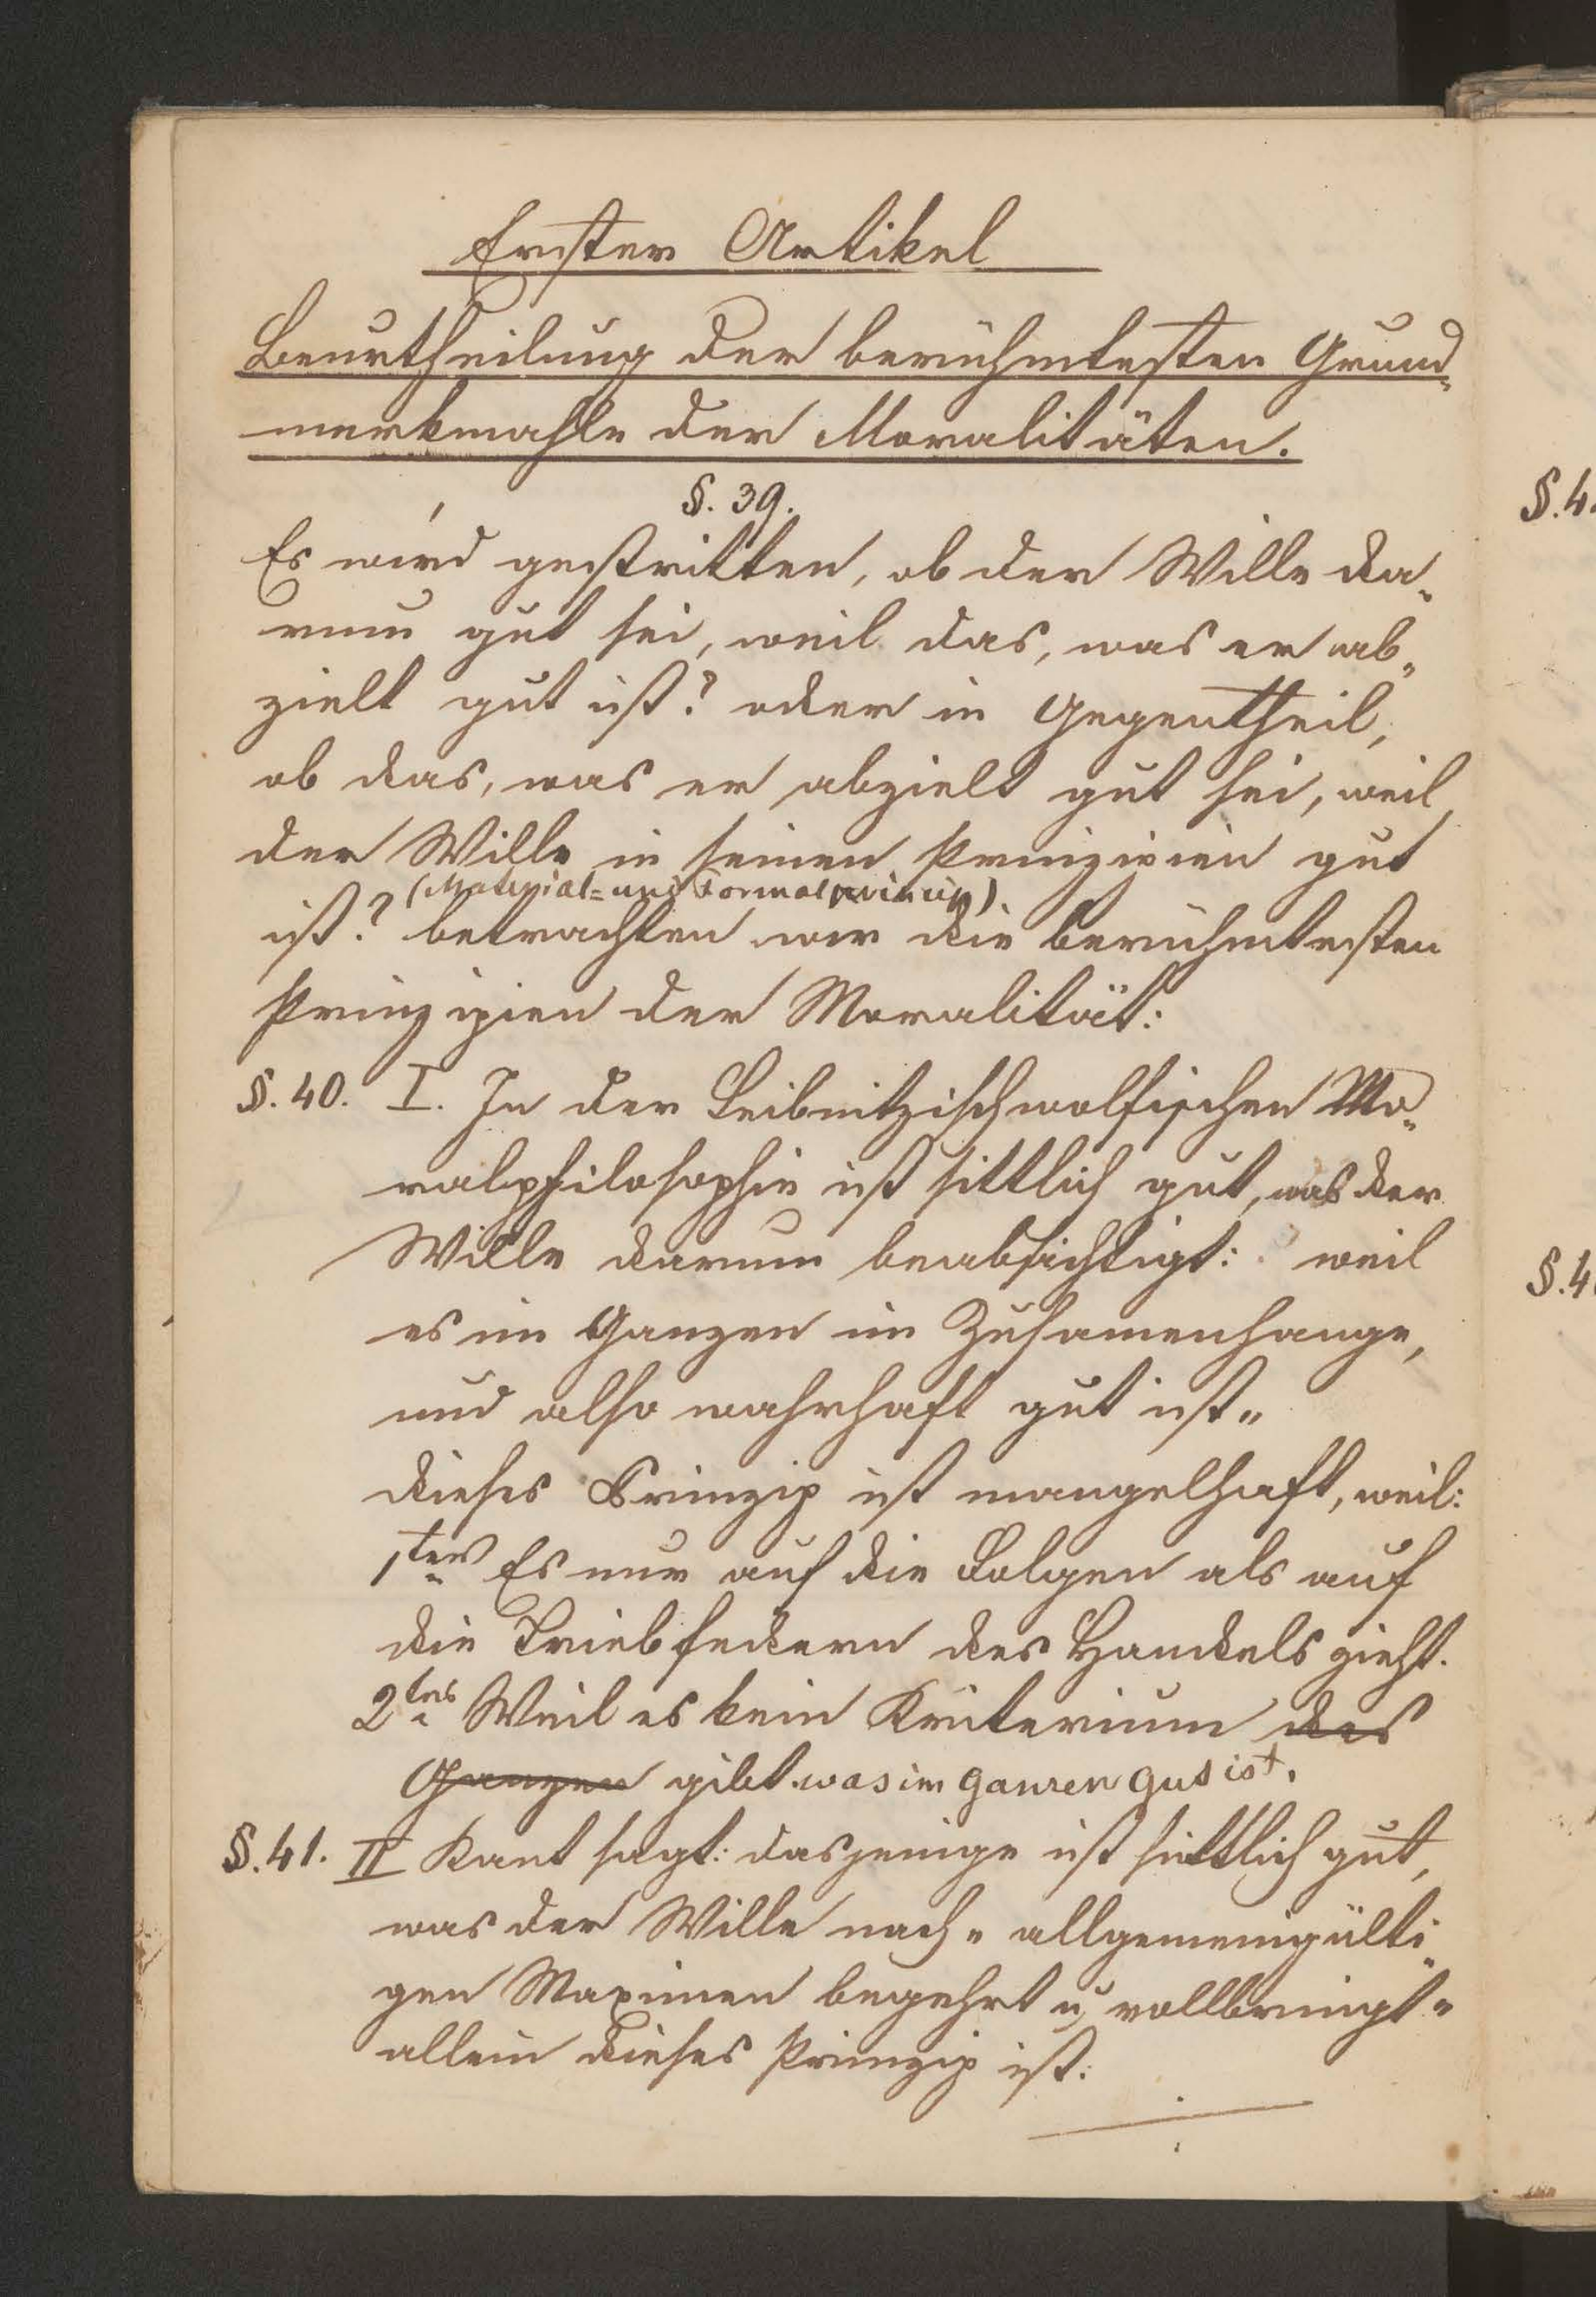 Erster Artikel
Beurtheilung der berühmtesten Grund-
merkmahle der Moralitäten.
§. 39.
Es wird gestritten, ob der Wille da-
rum gut sei, weil das, was er ab-
zielt gut ist? oder in Gegentheil,
ob das, was er abzielt gut sei, weil
der Wille in seinen Prinzipien gut
(Material= und Formalprincip)
ist? betrachten wir die berühmtesten
Prinzipien der Moralität:
§. 40. I. In der Leibnitzischwolfischen Mo-
ralphilosophie ist sittlich gut, was der
Wille darum beabsichtigt: weil
es im Ganzen im Zusamenhange,
und also wahrhaft gut ist"
dieses Prinzip ist mangelhaft, weil:
1ten Es nur auf die Folgen als auf
die Triebfedern des Handels zieht.
2tens Weil es kein Kriterium des
Ganzen gibt was im Ganzen gut ist.
§. 41. II Kant sagt: dasjenige ist sittlich gut,
was der Wille nach " allgemeingülti-
gen Maximen begehrt u vollbringt "
allein dieses Prinzip ist:
§.4
§.4